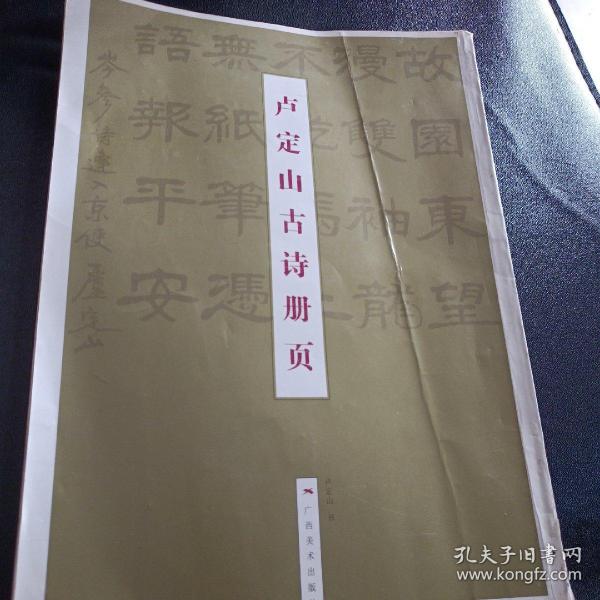 卢定山古诗册页
故園東望
漫雙袖龍
不乾馬上
無紙筆憑
語報平安
岑參詩逢入京使 盧定山
卢定山 书
广西美术出版
孔夫子旧书网
www.kongfz.com